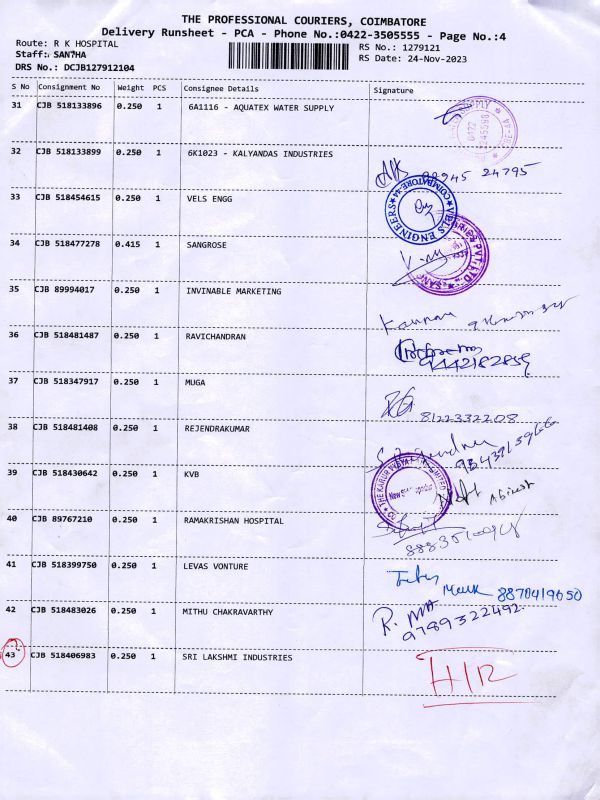 THE PROFESSIONAL COURIERS, COIMBATORE
Delivery Runsheet - PCA - Phone No.:0422-3505555 - Page No.:4
Route: R K HOSPITAL
RS No.: 1279121
Staff: SANTHA
RS Date: 24-Nov-2023
DRS No.: DCJB127912104
S No Consignment No Weight PCS Consignee Details Signature
31 CJB 518133896 0.250 1 6A1116 - AQUATEX WATER SUPPLY
32 CJB 518133899 0.250 1 6K1023 - KALYANDAS INDUSTRIES
24795
33 CJB 518454615 0.250 1 VELS ENGG
VELS ENGINEERS COIMBATORE-44
34 CJB 518477278 0.415 1 SANGROSE
35 CJB 89994017 0.250 1 INVINABLE MARKETING
36 CJB 518481487 0.250 1 RAVICHANDRAN
9442182859
37 CJB 518347917 0.250 1 MUGA
8122332208
38 CJB 518481408 0.250 1 REJENDRAKUMAR
39 CJB 518430642 0.250 1 KVB
THE KARUR VYSYA BANK LIMITED
40 CJB 89767210 0.250 1 RAMAKRISHAN HOSPITAL
41 CJB 518399750 0.250 1 LEVAS VONTURE
8870419650
42 CJB 518483026 0.250 1 MITHU CHAKRAVARTHY
9789322492
43 CJB 518406983 0.250 1 SRI LAKSHMI INDUSTRIES
?
H/R